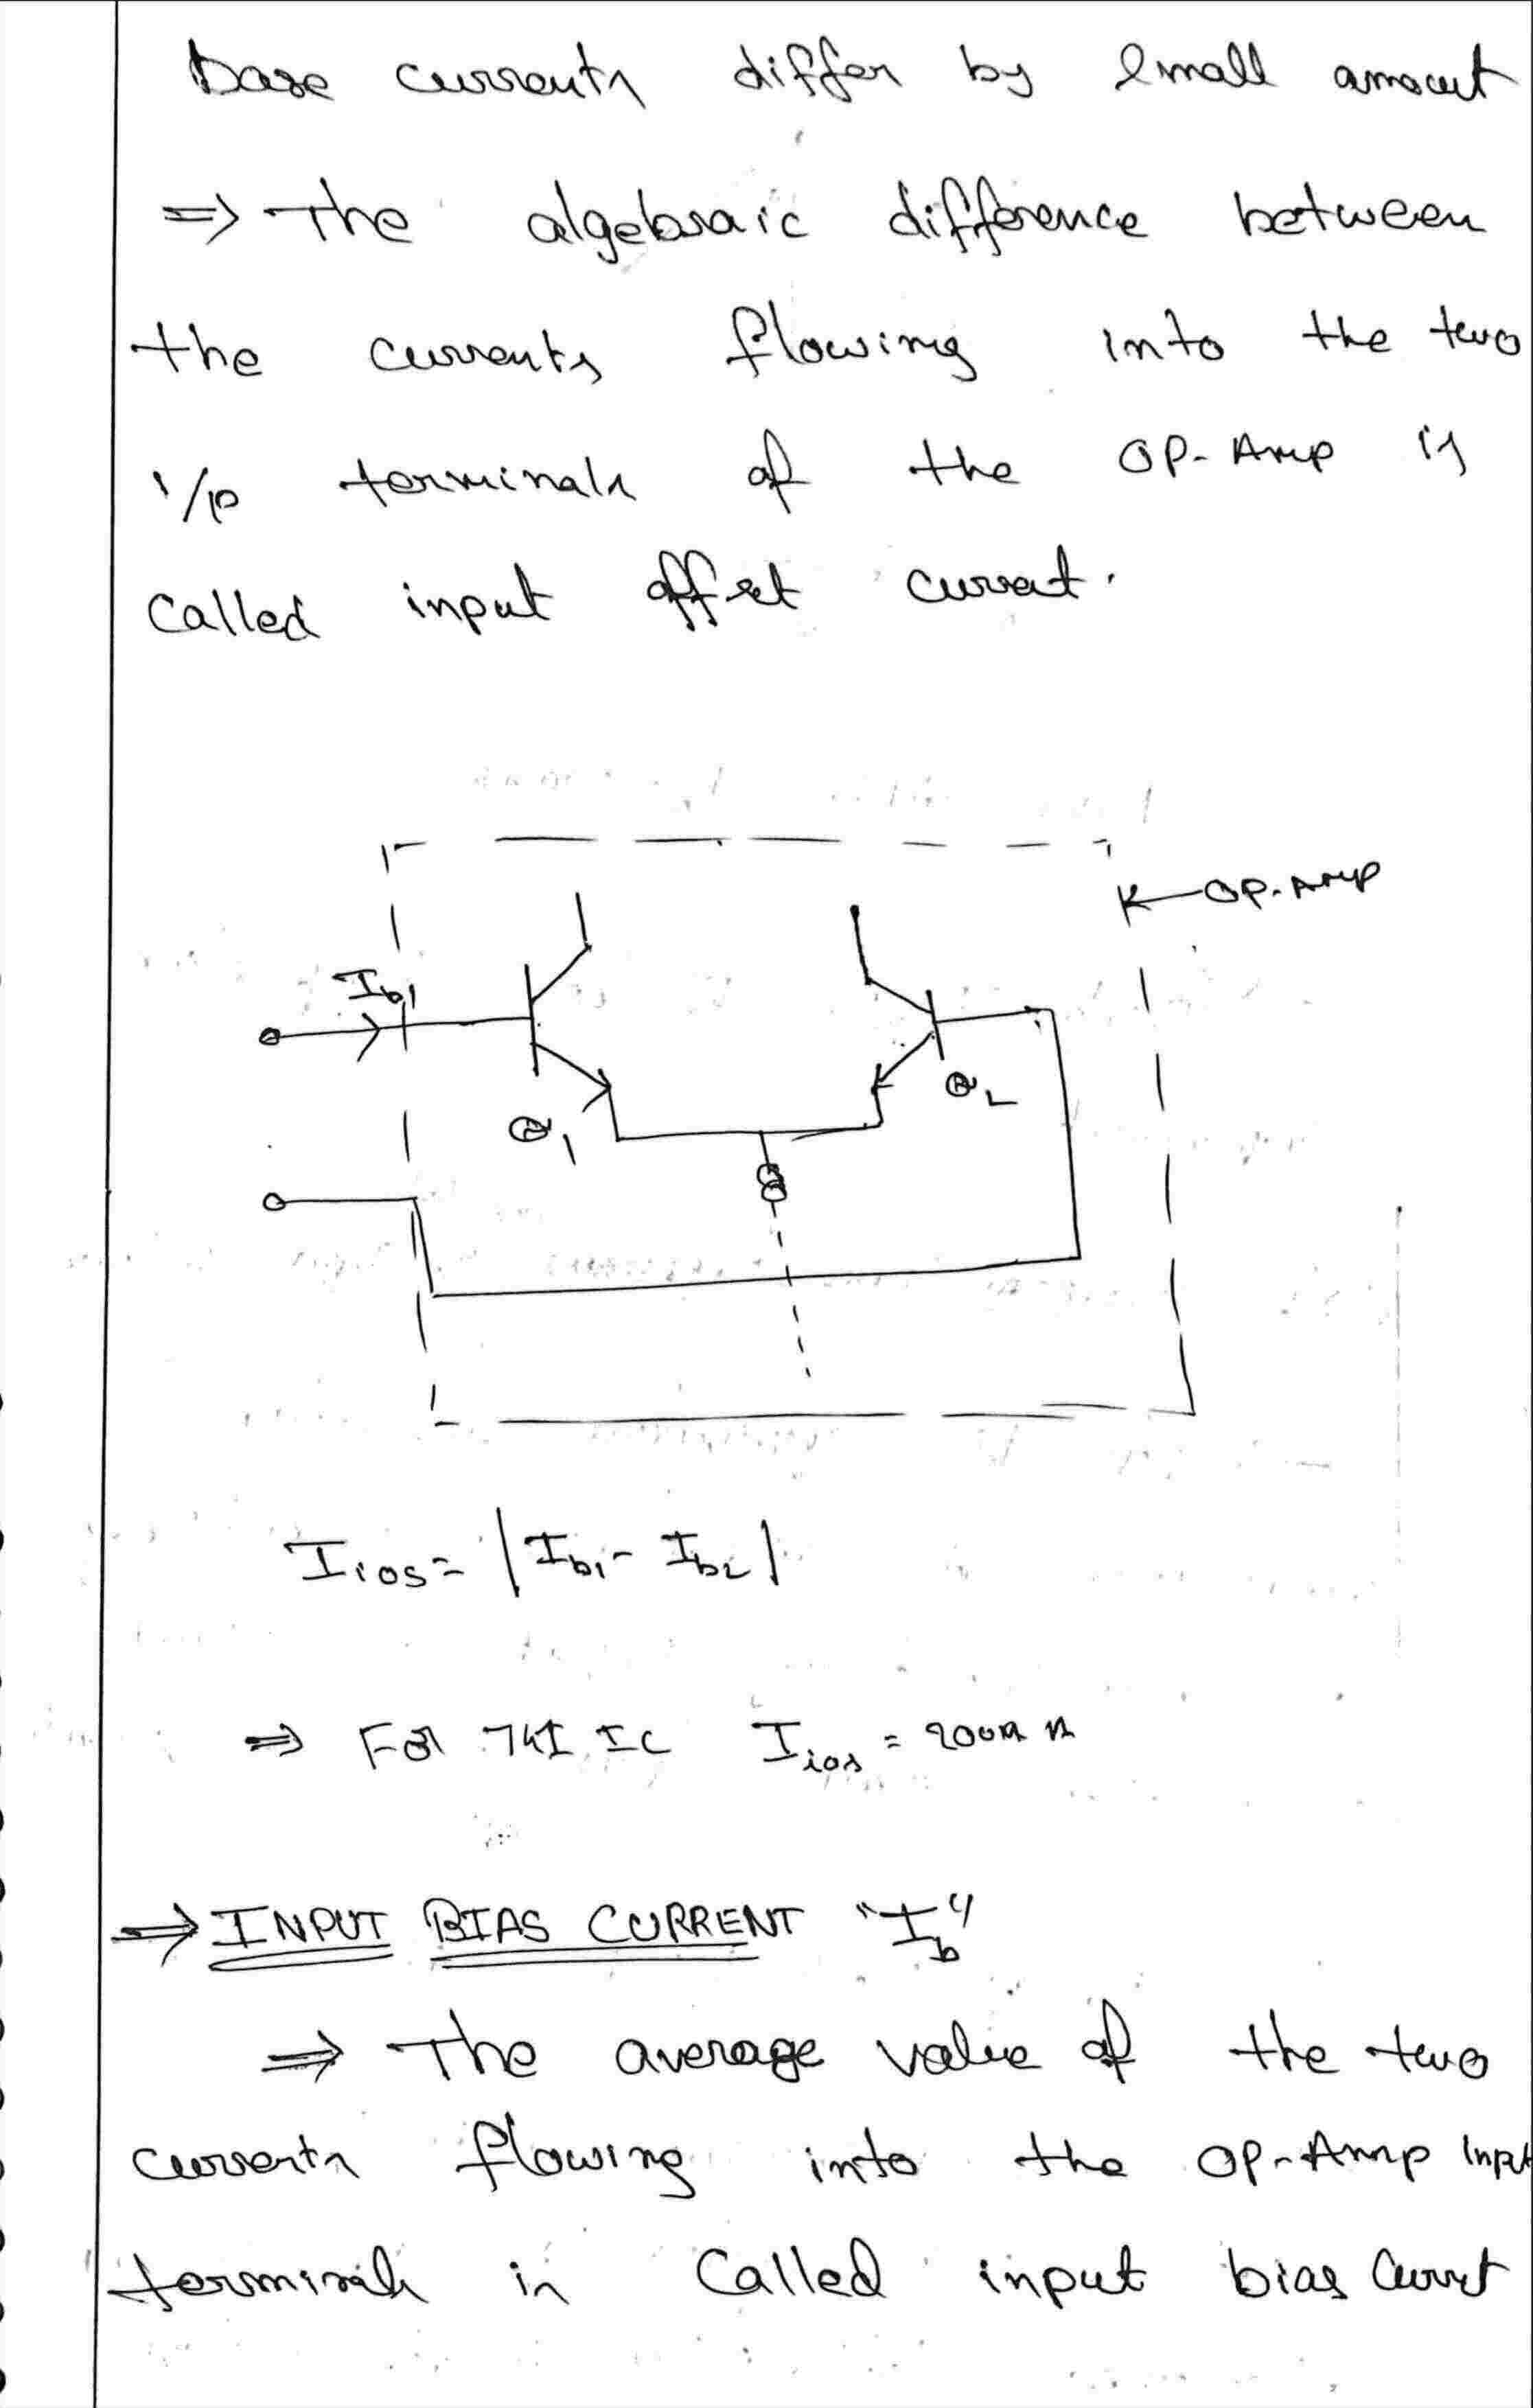 base currents differ by small amount
⇒ The algebraic difference between
the currents flowing into the two
i/p terminals of the OP-Amp is
called input offset current.
← OP-AMP
Ib1
Q2
Q1
Iios = |Ib1 - Ib2|
⇒ For 741 IC Iios = 200n A
⇒ INPUT BIAS CURRENT "Ib"
⇒ The average value of the two
currents flowing into the OP-Amp Input
terminals is called input bias current